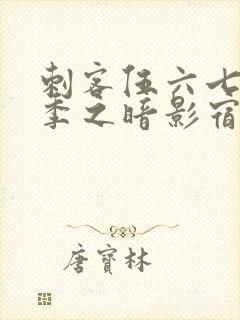 刺客伍六七
季之暗影宿
唐寶林